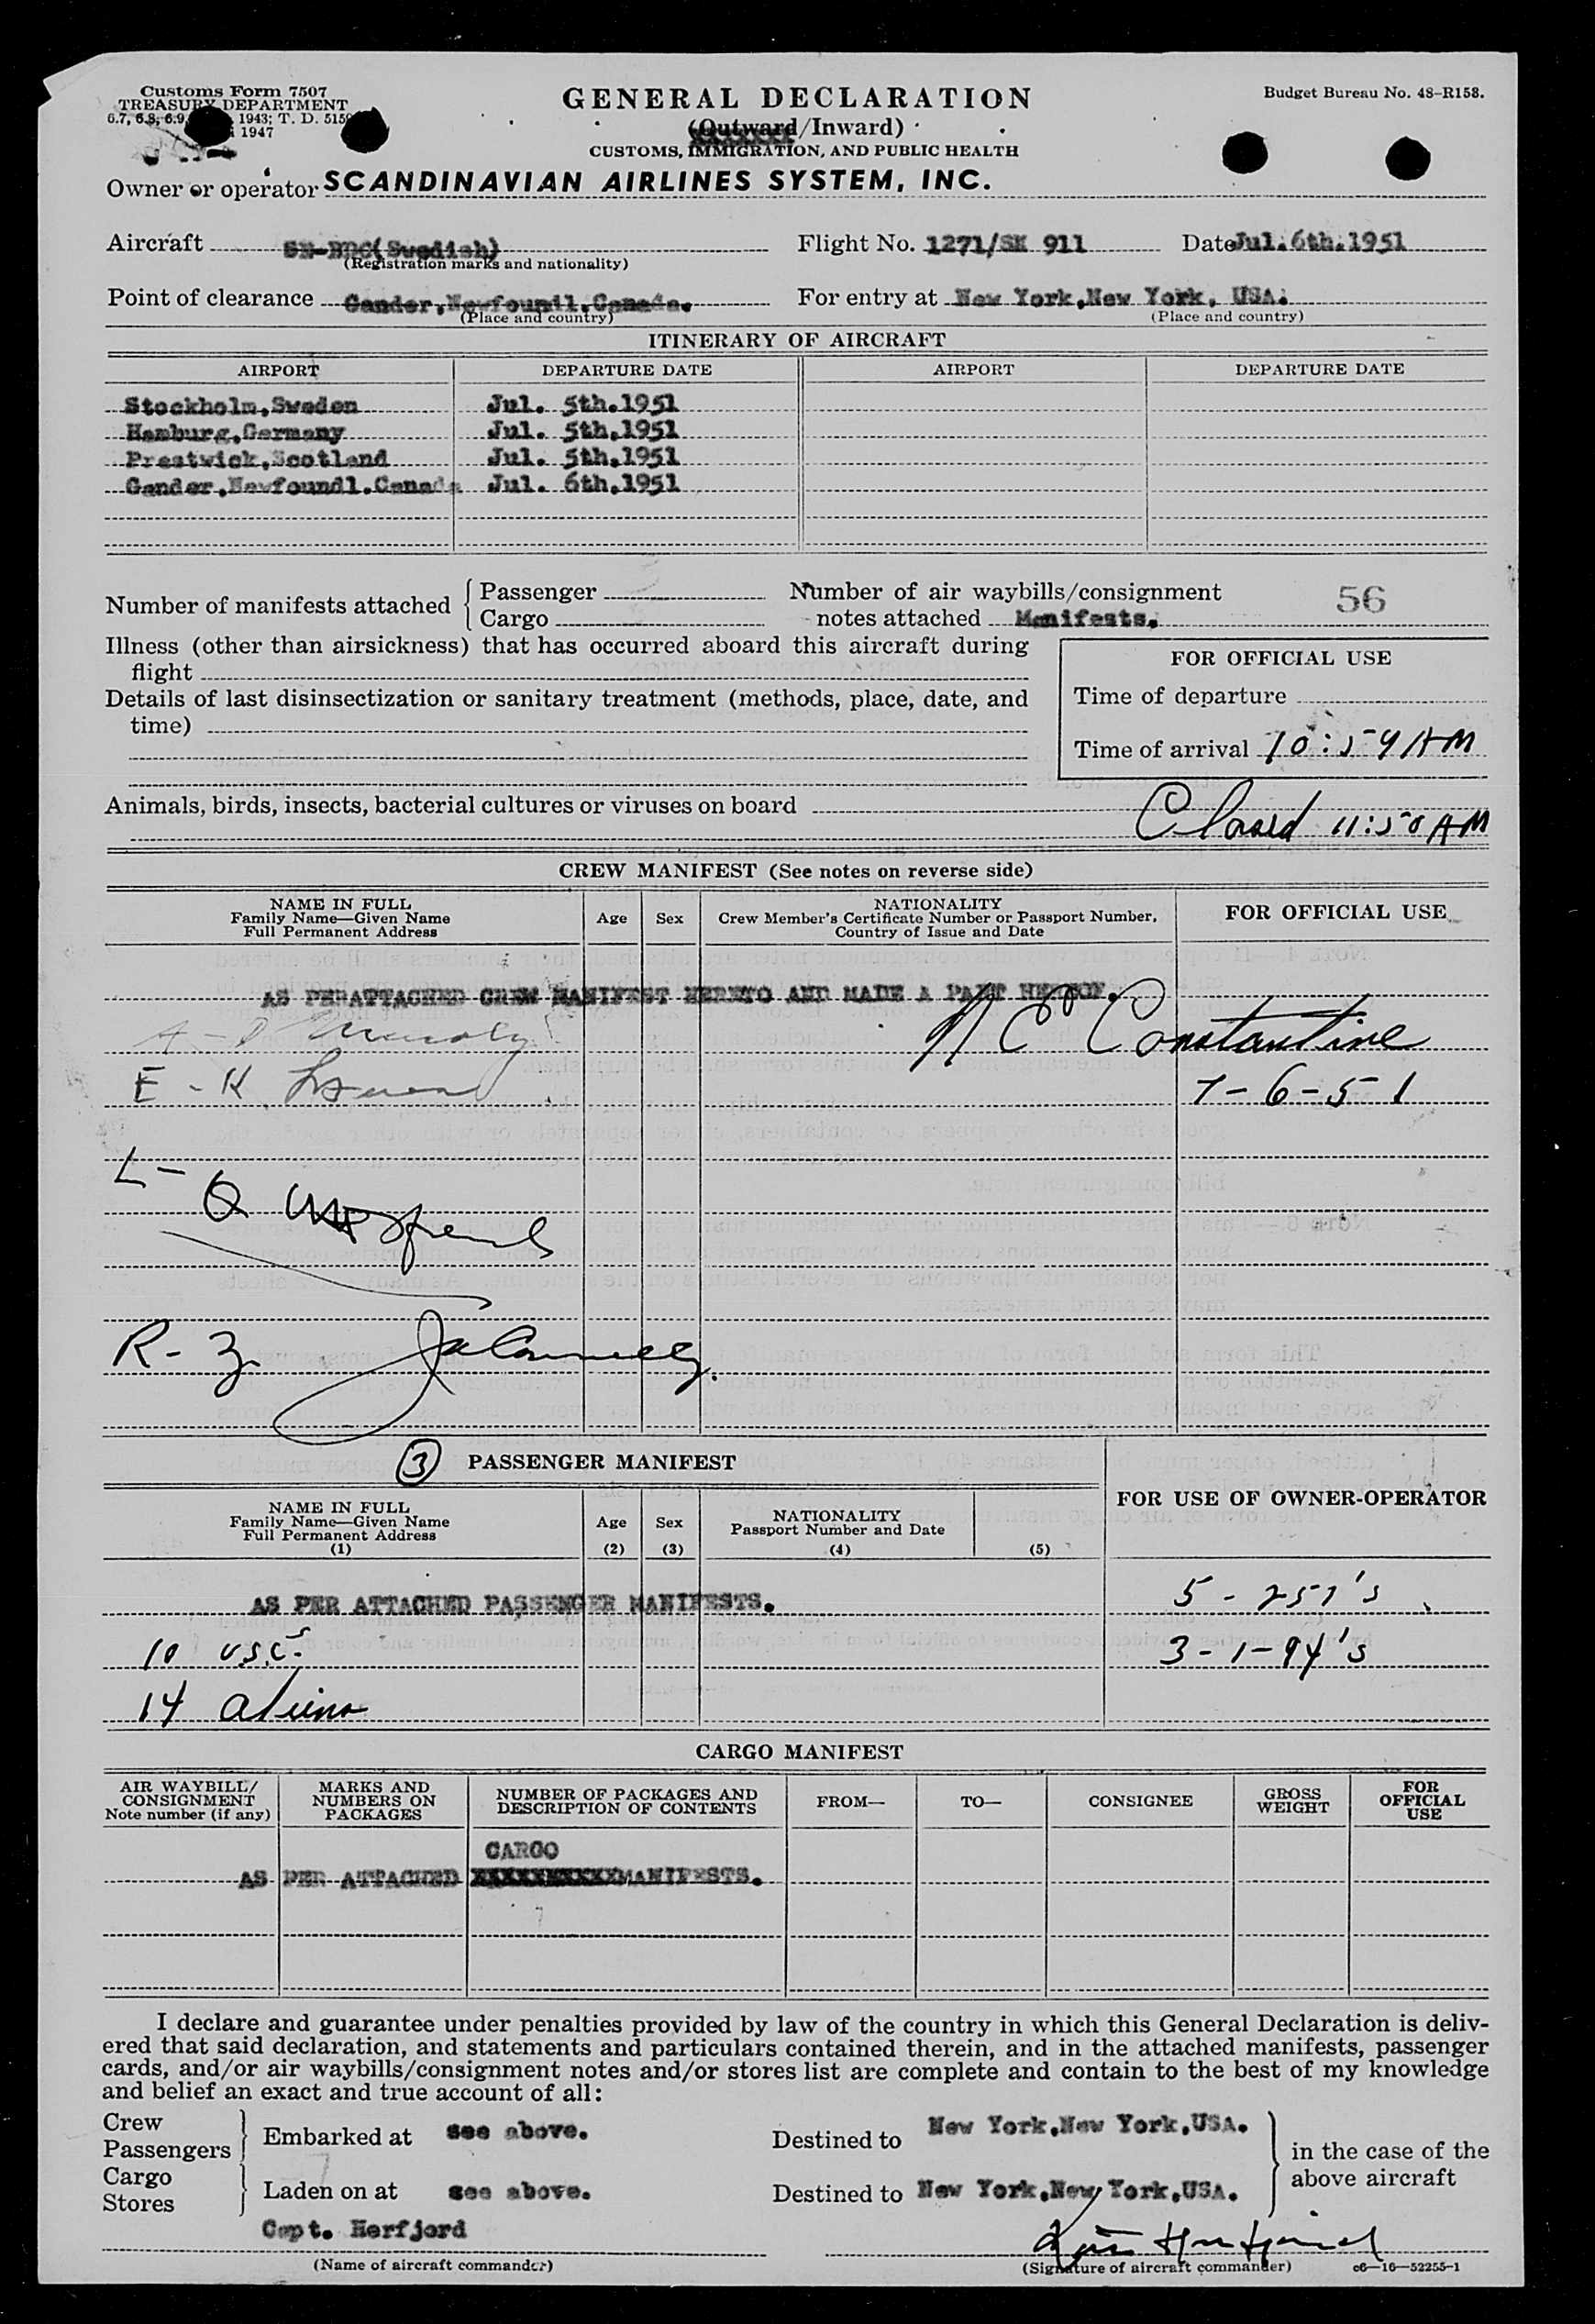 Customs Form 7507
TREASURY DEPARTMENT
6.7, 6.8, 6.9, 1943; T. D. 515
1947
GENERAL DECLARATION
(Outward/Inward)
CUSTOMS, IMMIGRATION, AND PUBLIC HEALTH
Budget Bureau No. 48-R158.
Owner or operator SCANDINAVIAN AIRLINES SYSTEM, INC.
Aircraft (Swedish) Flight No. 1271/SK 911 Date Jul.6th.1951
(Registration marks and nationality)
Point of clearance Gander,Newfoundl.Canada. For entry at New York,New York, USA.
(Place and country) (Place and country)
ITINERARY OF AIRCRAFT
AIRPORT DEPARTURE DATE AIRPORT DEPARTURE DATE
Stockholm,Sweden Jul. 5th.1951
Hamburg,Germany Jul. 5th.1951
Prestwick,Scotland Jul. 5th.1951
Gander,Newfoundl.Canada Jul. 6th.1951
Number of manifests attached { Passenger
Cargo
Number of air waybills/consignment
notes attached Manifests.
56
Illness (other than airsickness) that has occurred aboard this aircraft during
flight
Details of last disinsectization or sanitary treatment (methods, place, date, and
time)
FOR OFFICIAL USE
Time of departure
Time of arrival 10:59 AM
Animals, birds, insects, bacterial cultures or viruses on board
Closed 11:50 AM
CREW MANIFEST (See notes on reverse side)
NAME IN FULL
Family Name—Given Name
Full Permanent Address
Age Sex
NATIONALITY
Crew Member's Certificate Number or Passport Number,
Country of Issue and Date
FOR OFFICIAL USE
AS PERATTACHED CREW MANIFEST HERETO AND MADE A PART HEREOF.
N C Constantine
E - K
7-6-51
L - Q
R - 3
3 PASSENGER MANIFEST
NAME IN FULL
Family Name—Given Name
Full Permanent Address
(1)
Age
(2)
Sex
(3)
NATIONALITY
Passport Number and Date
(4) (5)
FOR USE OF OWNER-OPERATOR
AS PER ATTACHED PASSENGER MANIFESTS.
5 - 257's
10 USC's
3 - 1-94's
14 aliens
CARGO MANIFEST
AIR WAYBILL/
CONSIGNMENT
Note number (if any)
MARKS AND
NUMBERS ON
PACKAGES
NUMBER OF PACKAGES AND
DESCRIPTION OF CONTENTS
FROM— TO— CONSIGNEE
GROSS
WEIGHT
FOR
OFFICIAL
USE
CARGO
AS PER ATTACHED XXXXXXXXXXXMANIFESTS.
I declare and guarantee under penalties provided by law of the country in which this General Declaration is deliv-
ered that said declaration, and statements and particulars contained therein, and in the attached manifests, passenger
cards, and/or air waybills/consignment notes and/or stores list are complete and contain to the best of my knowledge
and belief an exact and true account of all:
Crew
Passengers } Embarked at see above. Destined to New York,New York,USA.
Cargo
Stores } Laden on at see above. Destined to New York,New York,USA.
} in the case of the
above aircraft
Capt. Herfjord
(Name of aircraft commander) (Signature of aircraft commander) c6—16—52255-1